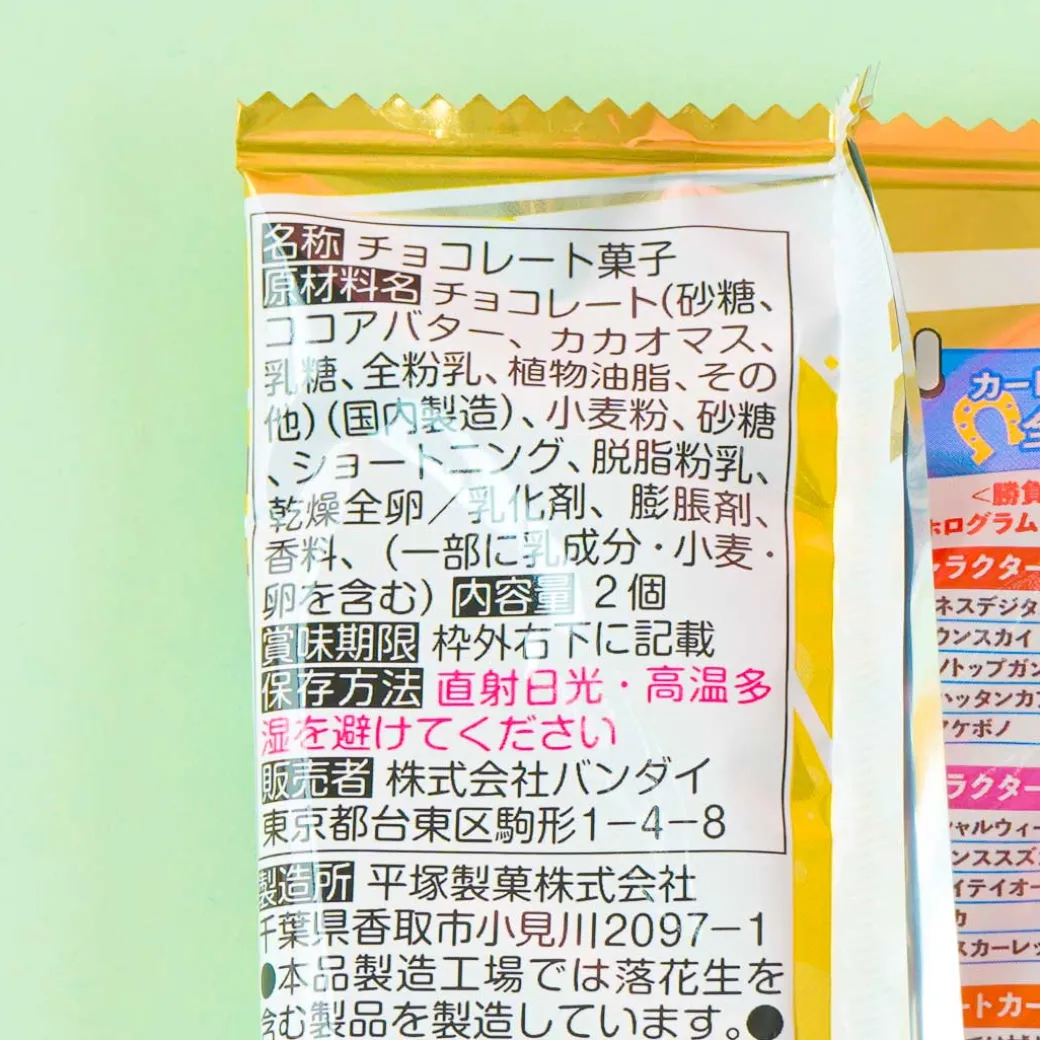 名称 チョコレート菓子
原材料名 チョコレート(砂糖、
ココアバター、カカオマス、
乳糖、全粉乳、植物油脂、その
他)(国内製造)、小麦粉、砂糖
、ショートニング、脱脂粉乳、
乾燥全卵/乳化剤、膨脹剤、
香料、(一部に乳成分・小麦・
卵を含む) 内容量 2個
賞味期限 枠外右下に記載
保存方法 直射日光・高温多
湿を避けてください
販売者 株式会社バンダイ
東京都台東区駒形1-4-8
製造所 平塚製菓株式会社
千葉県香取市小見川2097-1
●本品製造工場では落花生を
含む製品を製造しています。●
カー
<勝負
ホログラム
ラクター
ネスデジタ
ウンスカイ
トップガン
ハッタンカ
アケボノ
ラクター
ャルウィー
ンススズ
イテイオー
カ
スカーレッ
ートカー